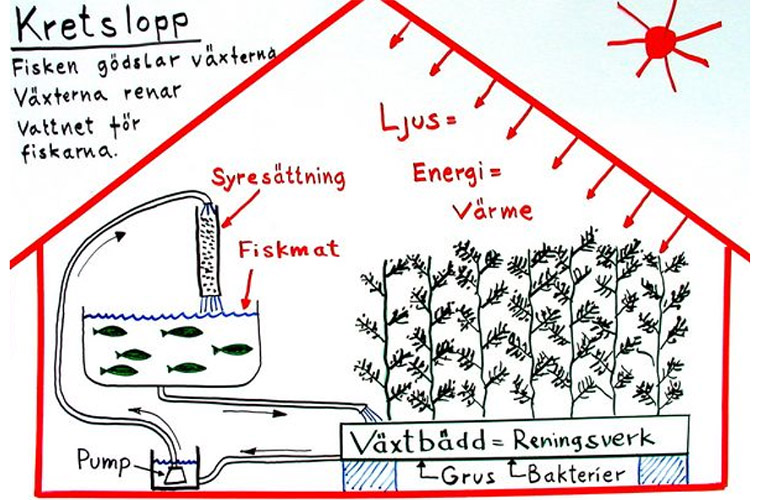 Kretslopp
Fisken gödslar växterna
Växterna renar
Vattnet för
fiskarna.
Ljus=
Energi=
Värme
Syresättning
Fiskmat
Växtbädd = Reningsverk
Pump
Grus
Bakterier